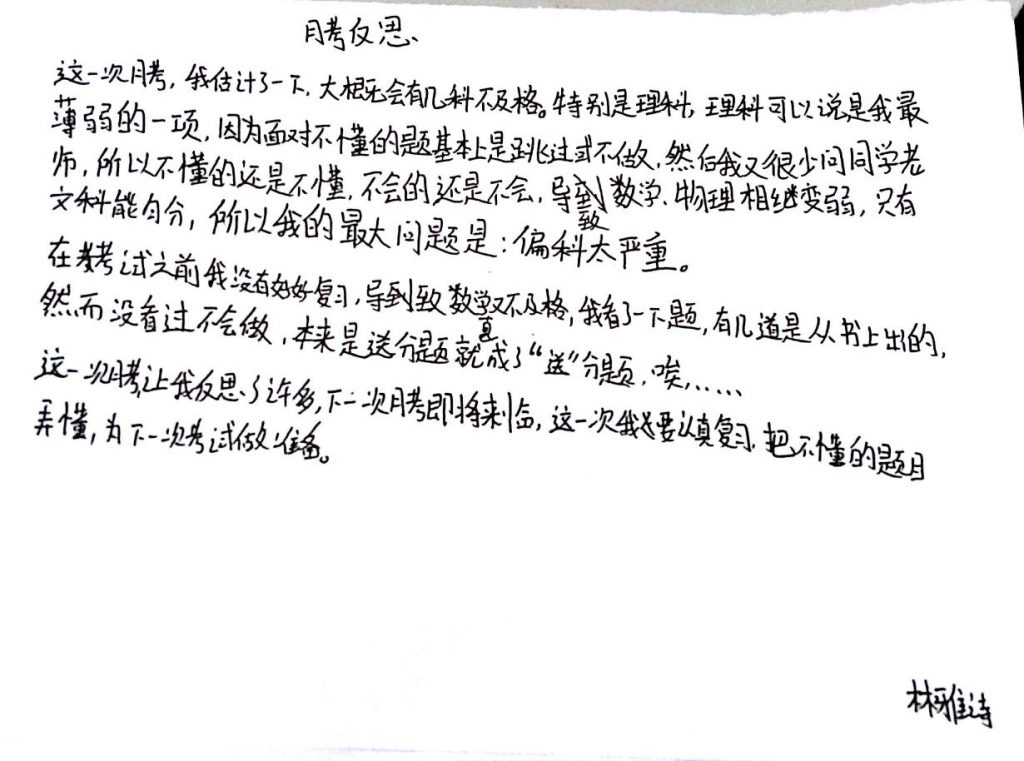 月考反思
这一次月考，我估计了一下，大概会有几科不及格。特别是理科，理科可以说是我最
薄弱的一项，因为面对不懂的题基本上是跳过式不做，然后我又很少问同学老
师，所以不懂的还是不懂，不会的还是不会，导致数学、物理相继变弱，只有
文科能匀分，所以我的最大问题是：偏科太严重。
在考试之前我没有好好复习，导致数学又不及格，我看了一下题，有几道是从书上出的，
然而没看过不会做，本来是送分题就真成了“送”分题，唉……
这一次月考让我反思了许多，下一次月考即将来临，这一次我要认真复习，把不懂的题目
弄懂，为下一次考试做准备。
林雅诗